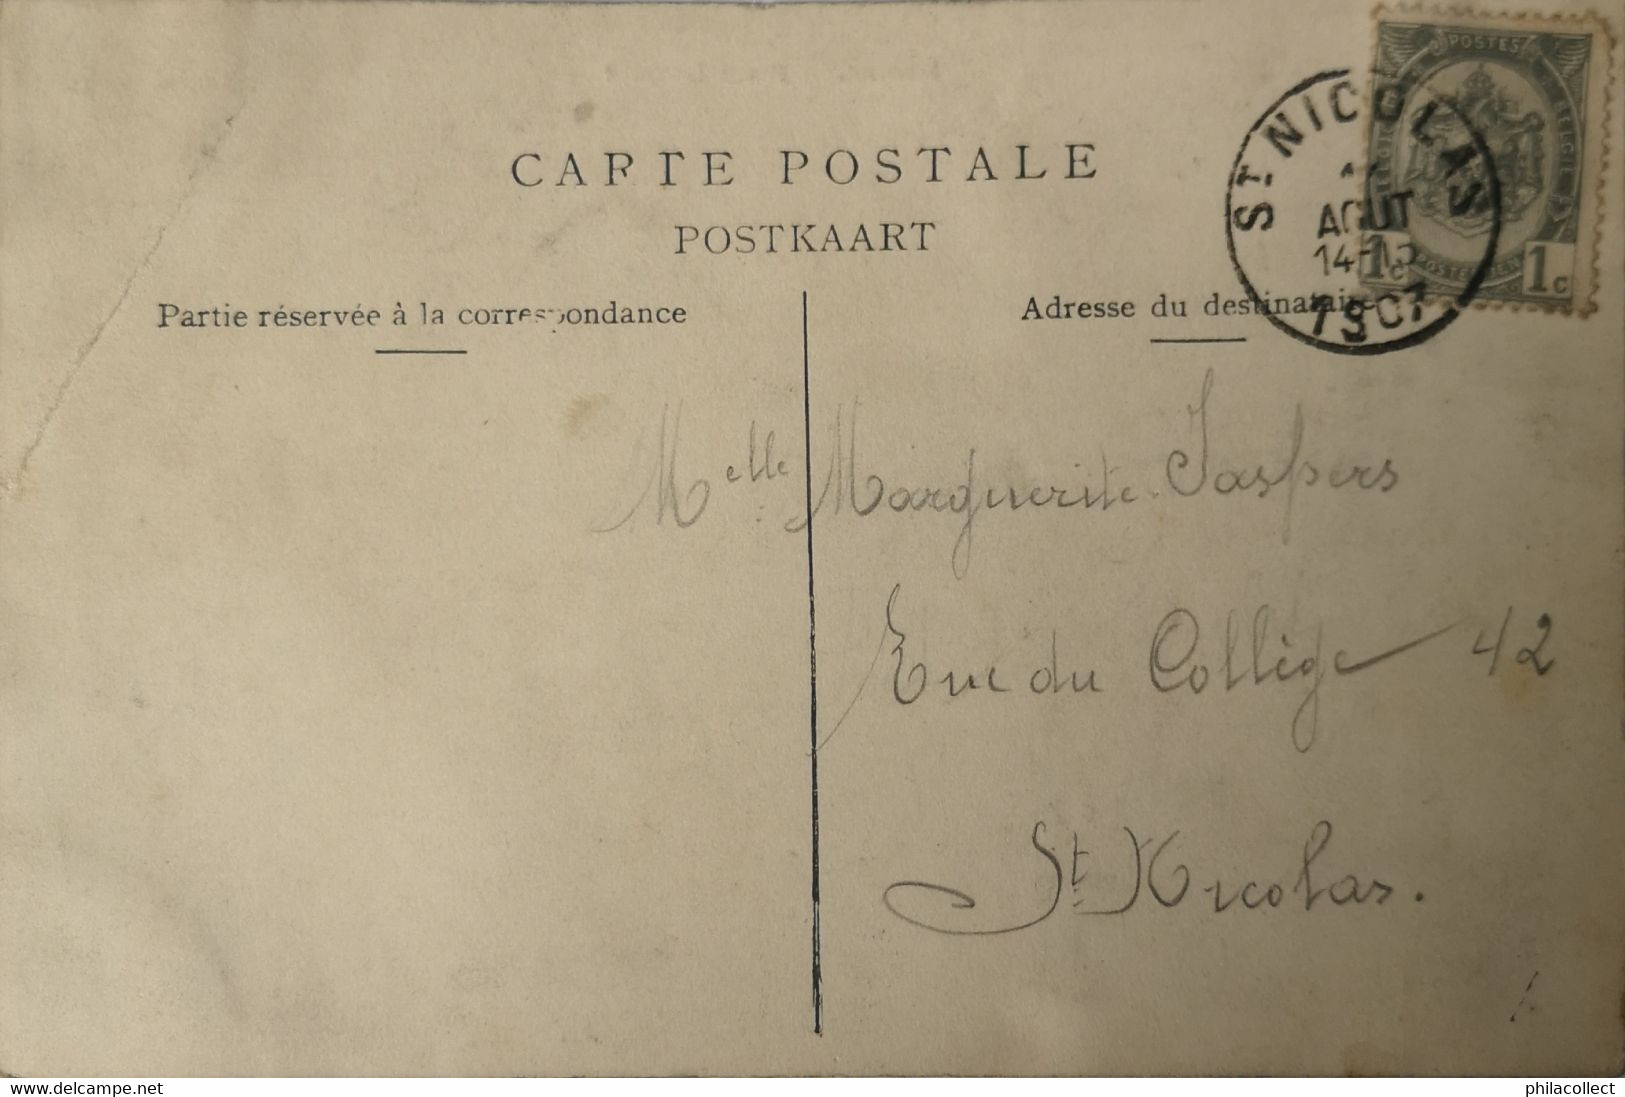 CARTE POSTALE
POSTKAART
Partie réservée à la correspondance
Adresse du destinataire
POSTES
BELGIE
POSTERIJEN
1c 1c
ST NICOLAS
AOUT
14-15
1907
Melle Marguerite Jaspers
Rue du Collège 42
St Nicolas.
www.delcampe.net
philacollect